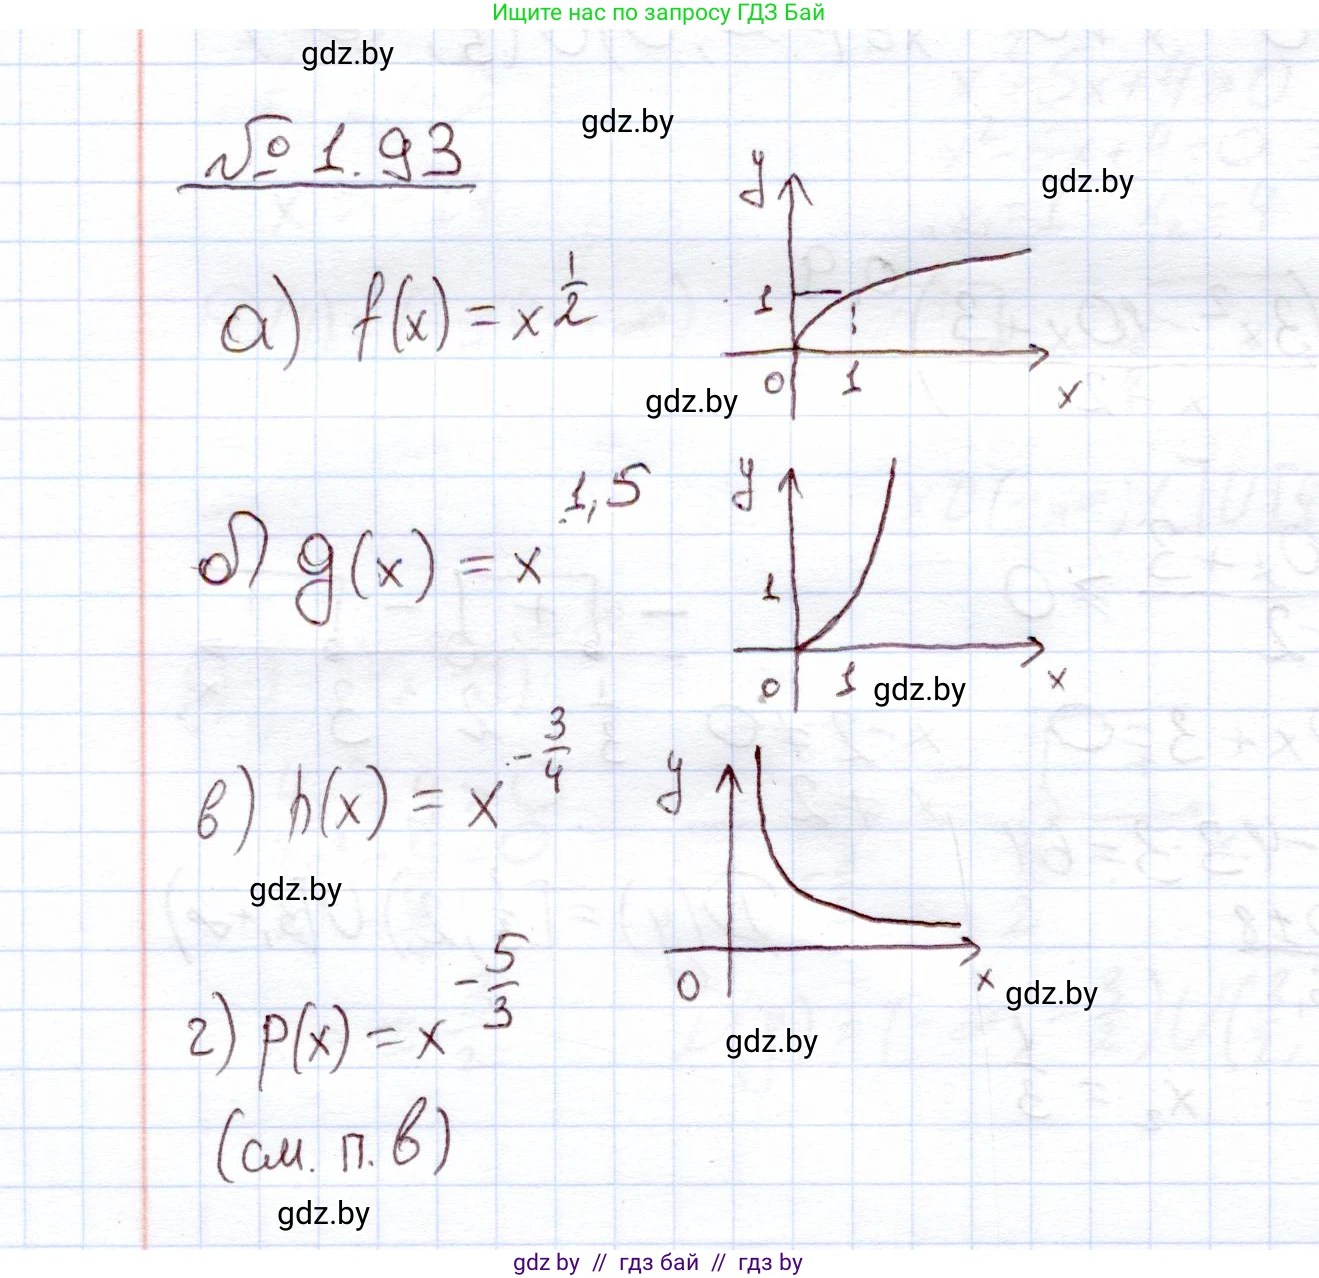 Ищите нас по запросу ГДЗ Бай
gdz.by
gdz.by
№ 1.93
gdz.by
y
а) f(x) = x^{\frac{1}{2}}
1
0 1 x
gdz.by
y
б) g(x) = x^{1,5}
1
0 1 x
gdz.by
y
в) h(x) = x^{-\frac{3}{4}}
gdz.by
0 x
gdz.by
г) p(x) = x^{-\frac{5}{3}}
gdz.by
(см. п. в)
gdz.by
gdz by // гдз бай // гдз by